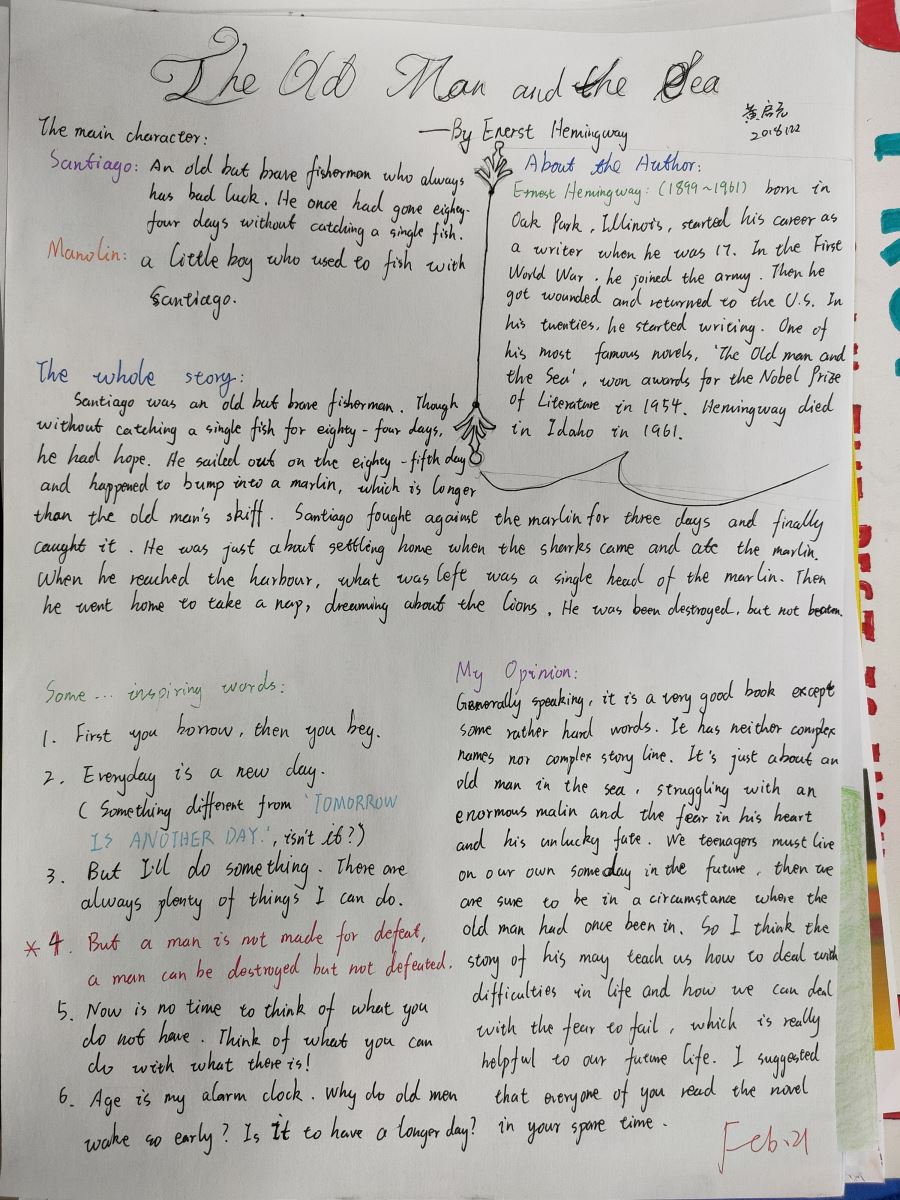 The Old Man and the Sea
—By Enerst Hemingway
黄启元
2018.1.22
The main character:
Santiago: An old but brave fisherman who always
has bad luck. He once had gone eighty-
four days without catching a single fish.
Manolin: a little boy who used to fish with
Santiago.
About the Author:
Ernest Hemingway: (1899~1961) born in
Oak Park, Illinois, started his career as
a writer when he was 17. In the First
World War, he joined the army. Then he
got wounded and returned to the U.S. In
his twenties, he started writing. One of
his most famous novels, 'The Old man and
the Sea', won awards for the Nobel Prize
of Literature in 1954. Hemingway died
in Idaho in 1961.
The whole story:
Santiago was an old but brave fisherman. Though
without catching a single fish for eighty-four days,
he had hope. He sailed out on the eighty-fifth day
and happened to bump into a marlin, which is longer
than the old man's skiff. Santiago fought against the marlin for three days and finally
caught it. He was just about settling home when the sharks came and ate the marlin.
When he reached the harbour, what was left was a single head of the marlin. Then
he went home to take a nap, dreaming about the lions. He was been destroyed, but not beaten.
Some... inspiring words:
1. First you borrow, then you beg.
2. Everyday is a new day.
( Something different from 'TOMORROW
IS ANOTHER DAY.', isn't it?)
3. But I'll do something. There are
always plenty of things I can do.
*4. But a man is not made for defeat,
a man can be destroyed but not defeated.
5. Now is no time to think of what you
do not have. Think of what you can
do with what there is!
6. Age is my alarm clock. Why do old men
wake so early? Is it to have a longer day?
My Opinion:
Generally speaking, it is a very good book except
some rather hard words. It has neither complex
names nor complex story line. It's just about an
old man in the sea, struggling with an
enormous malin and the fear in his heart
and his unlucky fate. We teenagers must live
on our own someday in the future, then we
are sure to be in a circumstance where the
old man had once been in. So I think the
story of his may teach us how to deal with
difficulties in life and how we can deal
with the fear to fail, which is really
helpful to our future life. I suggested
that everyone of you read the novel
in your spare time.
Feb.21